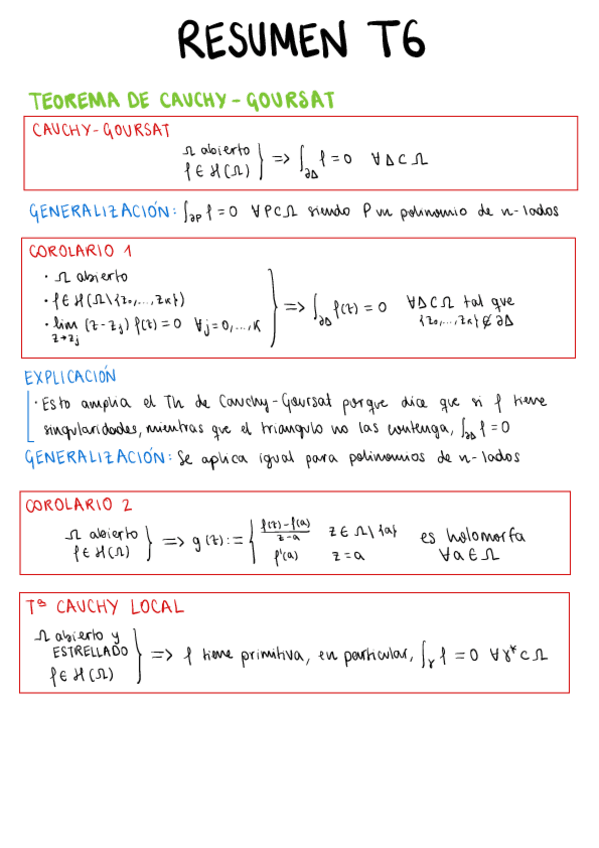 RESUMEN T6
TEOREMA DE CAUCHY-GOURSAT
CAUCHY-GOURSAT
Ω abierto
f ∈ H(Ω) } => ∫_∂Δ f = 0 ∀Δ ⊂ Ω
GENERALIZACIÓN: ∫_∂P f = 0 ∀P ⊂ Ω siendo P un polinomio de n-lados
COROLARIO 1
· Ω abierto
· f ∈ H(Ω\{z₀,...,zₖ})
· lim_{z→zⱼ} (z-zⱼ) f(z) = 0 ∀j=0,...,K } => ∫_∂Δ f(z) = 0 ∀Δ ⊂ Ω tal que
{z₀,...,zₖ} ⊄ ∂Δ
EXPLICACIÓN
· Esto amplia el Th de Cauchy-Goursat porque dice que si f tiene
singularidades, mientras que el triangulo no las contenga, ∫_∂Δ f = 0
GENERALIZACIÓN: Se aplica igual para polinomios de n-lados
COROLARIO 2
Ω abierto
f ∈ H(Ω) } => g(z) := { (f(z)-f(a))/(z-a) z ∈ Ω\{a}
f'(a) z = a
es holomorfa
∀a ∈ Ω
Tª CAUCHY LOCAL
Ω abierto y
ESTRELLADO
f ∈ H(Ω) } => f tiene primitiva, en particular, ∫_γ f = 0 ∀γ* ⊂ Ω